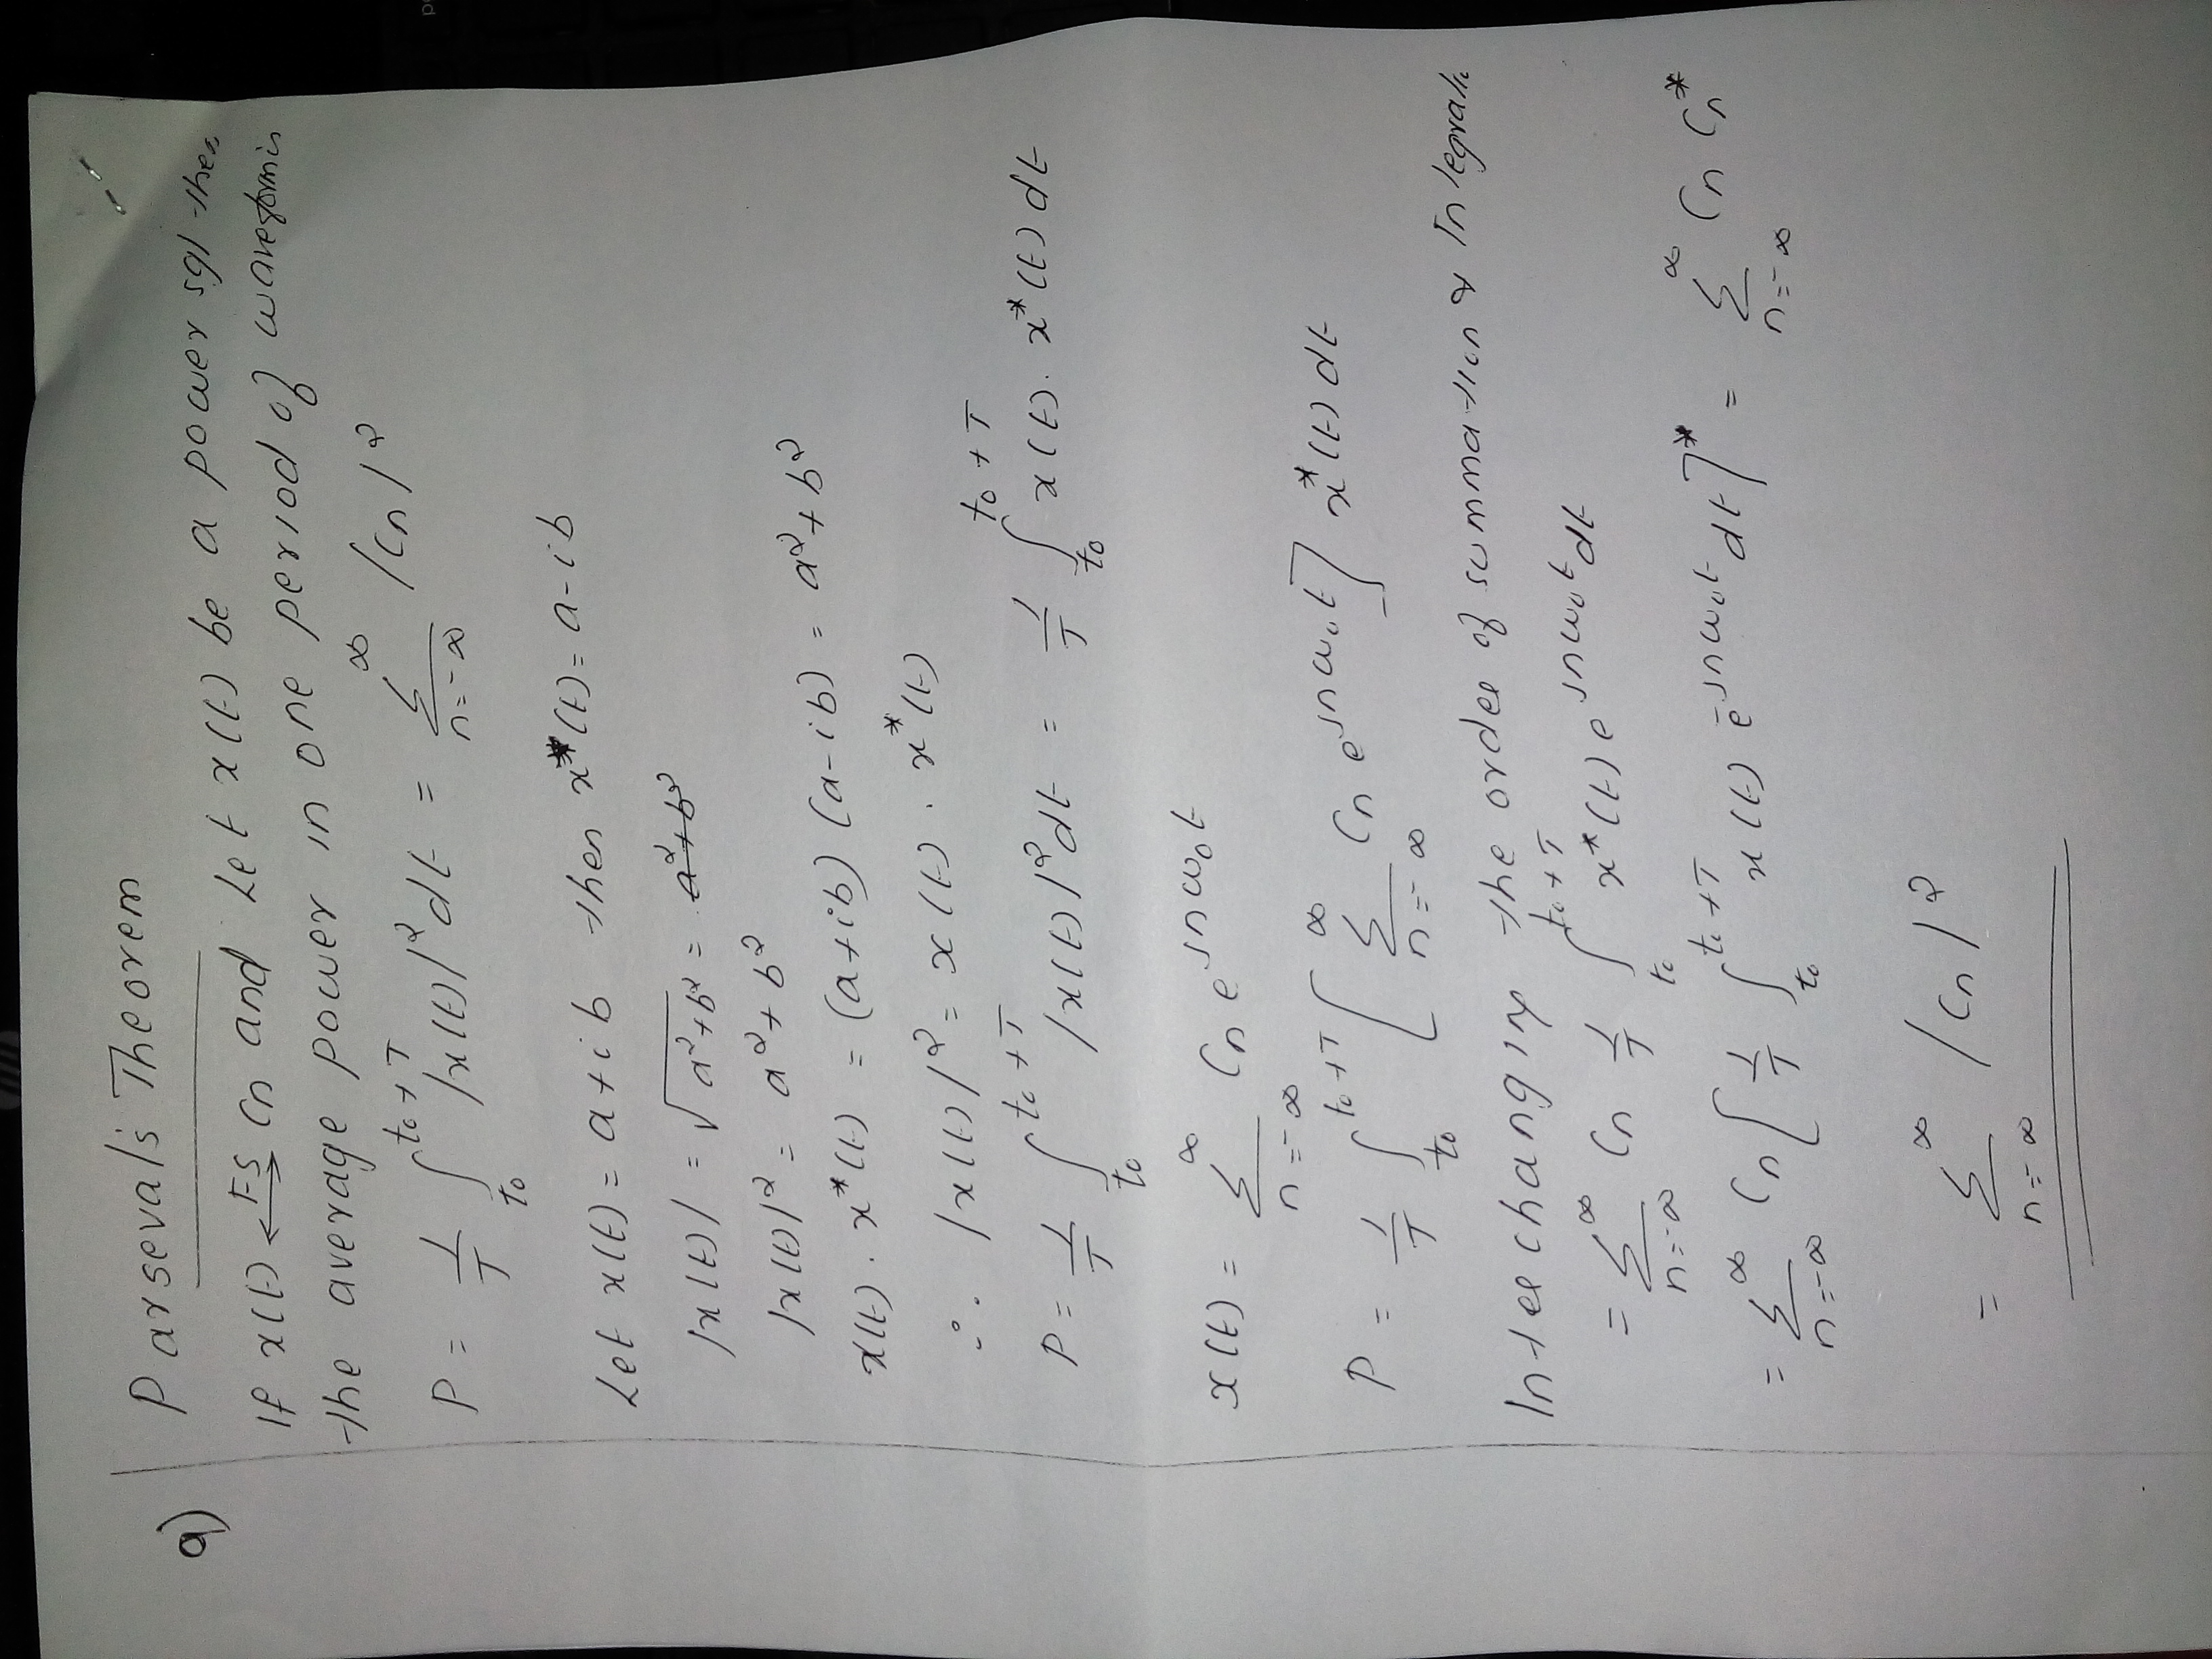 a)
Parseval's Theorem
If x(t) ←FS→ Cn and Let x(t) be a power sgl then
the average power in one period of waveform is
P = 1/T ∫_{t0}^{t0+T} |x(t)|² dt = Σ_{n=-∞}^{∞} |Cn|²
Let x(t) = a+ib then x*(t) = a-ib
|x(t)| = √(a²+b²) = a²+b²
|x(t)|² = a²+b²
x(t). x*(t) = (a+ib) (a-ib) = a²+b²
∴ |x(t)|² = x(t). x*(t)
P = 1/T ∫_{t0}^{t0+T} |x(t)|² dt = 1/T ∫_{t0}^{t0+T} x(t). x*(t) dt
x(t) = Σ_{n=-∞}^{∞} Cn e^{jnω0t}
P = 1/T ∫_{t0}^{t0+T} [Σ_{n=-∞}^{∞} Cn e^{jnω0t}] x*(t) dt
Interchanging the order of summation &
= Σ_{n=-∞}^{∞} Cn 1/T ∫_{t0}^{t0+T} x*(t) e^{jnω0t} dt
= Σ_{n=-∞}^{∞} Cn [1/T ∫_{t0}^{t0+T} x(t) e^{-jnω0t} dt]* = Σ_{n=-∞}^{∞} Cn Cn*
= Σ_{n=-∞}^{∞} |Cn|²